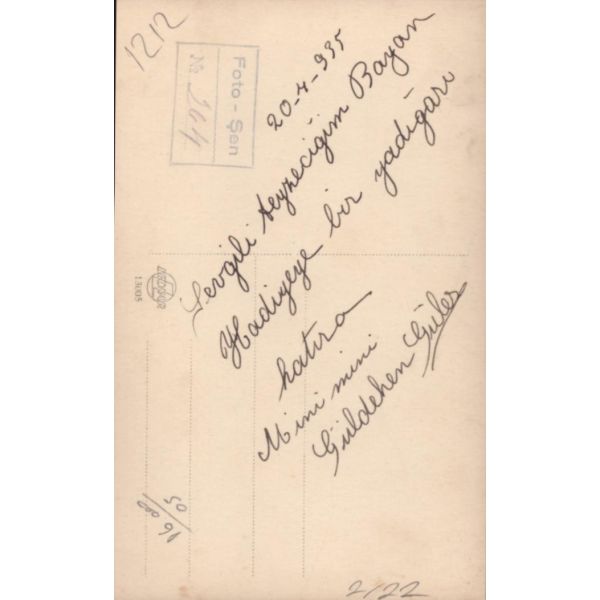 1212
Foto - Şen
No 204
20-4-935
Sevgili teyzeciğim Bayan
Hadiyeye bir yadigârı
hatıra
Mini mini
Güldehen Güler
13005
2/22